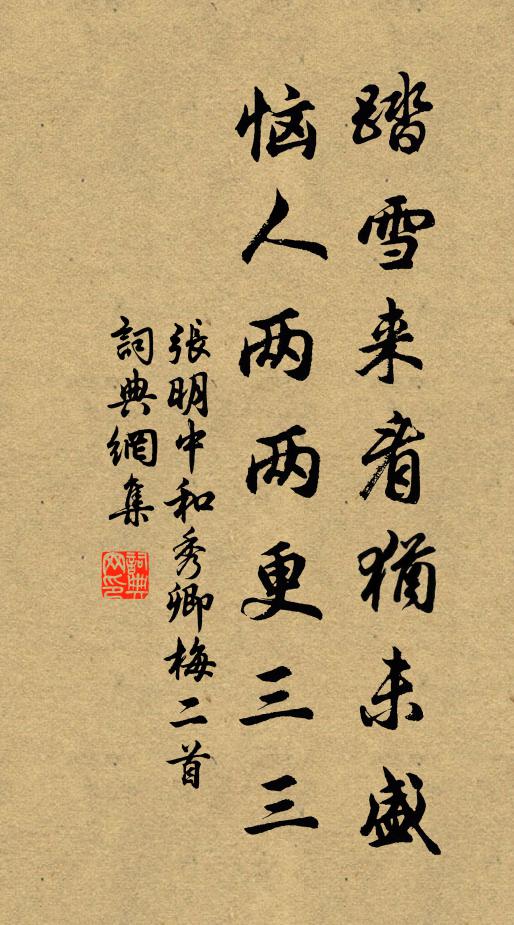 踏雪来看猶未盛
恼人两两更三三
張明中和秀卿梅二首
詞典網集
詞典
网印